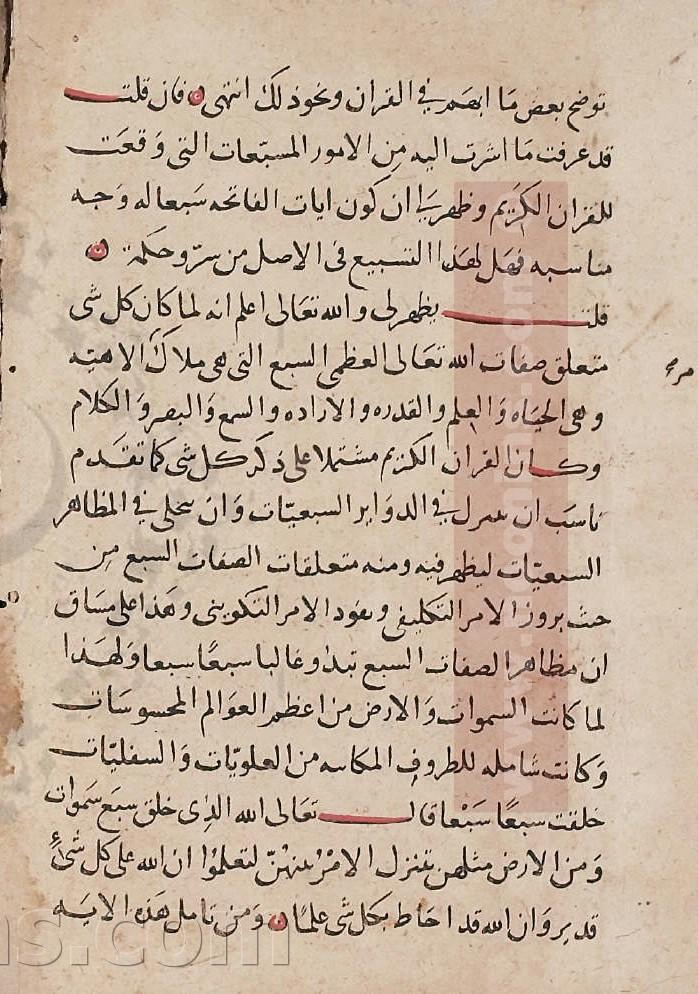 توضح بعض ما ابهم في القران ونحو ذلك انتهى فان قلت
قد عرفت ما اشرت اليه من الامور المسبعات التي وقعت
للقران الكريم وظهر لي ان كون ايات الفاتحه سبعا له وجه
مناسبه فهل لهذا التسبيع في الاصل من سر وحكمة
قلت يظهر لي والله تعالى اعلم انه لما كان كل شي
متعلق صفات الله تعالى العظمى السبع التي هي ملاك الاهيه
وهي الحياه والعلم والقدره والاراده والسمع والبصر والكلام
وكان القران الكريم مشتملا على ذكر كل شي كما تقدم
ناسب ان ينزل في الدواير السبعيات وان يتجلى في المظاهر
السبعيات ليظهر فيه ومنه متعلقات الصفات السبع من
حيث بروز الامر التكليفي ونفوذ الامر التكويني وهذا على مساق
ان مظاهر الصفات السبع تبدو غالبا سبعا سبعا ولهذا
لما كانت السموات والارض من اعظم العوالم المحسوسات
وكانت شامله للظروف المكانيه من العلويات والسفليات
خلقت سبعا سبعا قال تعالى الله الذي خلق سبع سموات
ومن الارض مثلهن يتنزل الامر بينهن لتعلموا ان الله على كل شئ
قدير وان الله قد احاط بكل شي علما ومن تامل هذه الايه